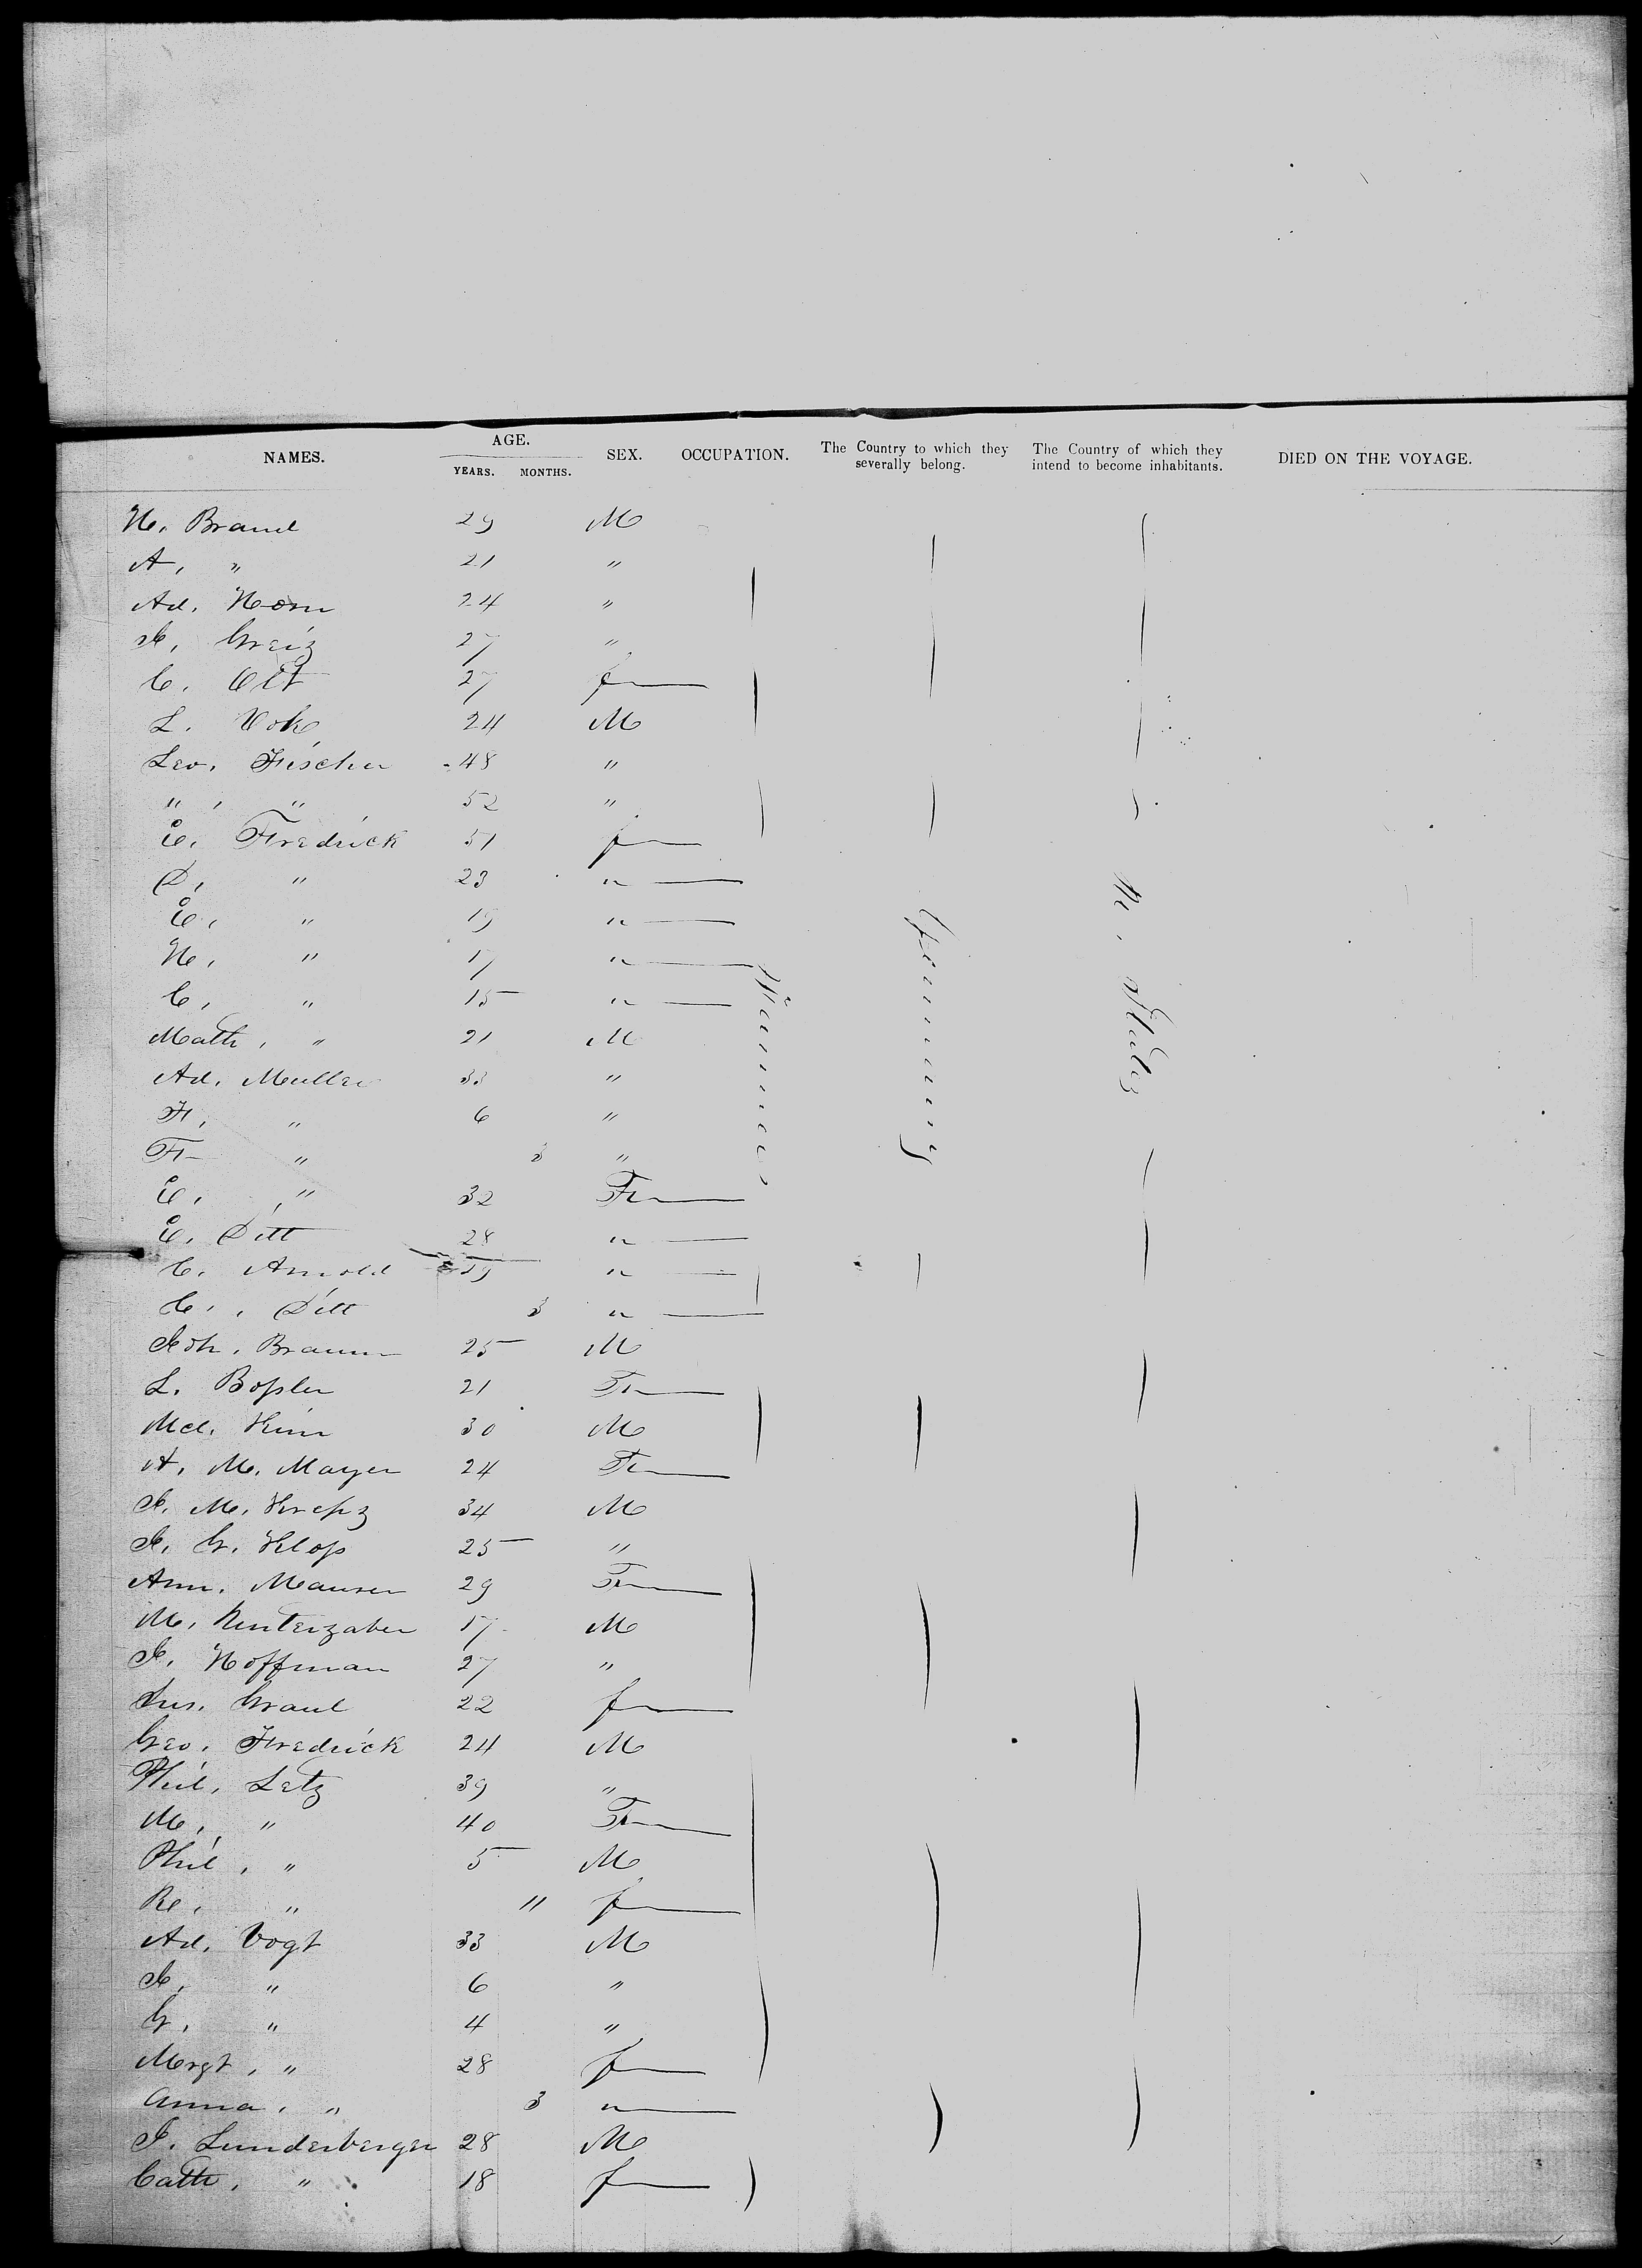 NAMES. AGE. YEARS. MONTHS. SEX. OCCUPATION. The Country to which they severally belong. The Country of which they intend to become inhabitants. DIED ON THE VOYAGE.
H. Brand 29 M
A, " 21 "
Ad. Horn 24 "
J. Greiz 27 "
C. Ott 27 f
L. Vok 24 M
Leo. Fischer 48 "
" , " 52 "
E. Fredrick 51 f
D, " 23 "
E, " 19 "
H, " 17 "
C, " 15 "
Math, " 21 M
Ad. Muller 33 "
F, " 6 "
F " 3 "
E, " 32 F
E. Ditt 28 "
C. Arnold 19 "
C, Ditt 3 "
Joh. Braun 25 M
L. Boßler 21 F
Md. Kim 30 M
A. M. Mayer 24 F
J. M. Kreßz 34 M
J. G. Kloß 25 "
Ann. Mauser 29 F
M. Kunterzaber 17 M
J. Hoffman 27 "
Sus. Graul 22 f
Geo. Fredrick 24 M
Phil. Letz 39 "
M, " 40 F
Phil, " 5 M
Re, " 11 f
Ad. Vogt 33 M
J, " 6 "
G, " 4 "
Mrgt, " 28 f
Anna, " 3 "
J. Lunderberger 28 M
Cath, " 18 f
Farmer
Germany
U. States